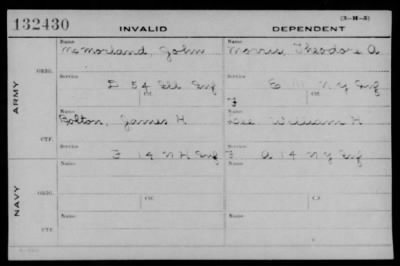 132430
INVALID
DEPENDENT
(3-H-5)
ARMY
ORIG.
Name
McMorland, John
Name
Morris, Theodore A
Service
E 54 Ill Inf
Service
E N Y Inf
OR
OR
F
CTF.
Name
Bolton, James H
Name
Lee William H
Service
F 14 N H Inf
Service
F A 14 N Y Inf
NAVY
ORIG.
Name
Name
OR
CTF.
Name
Name